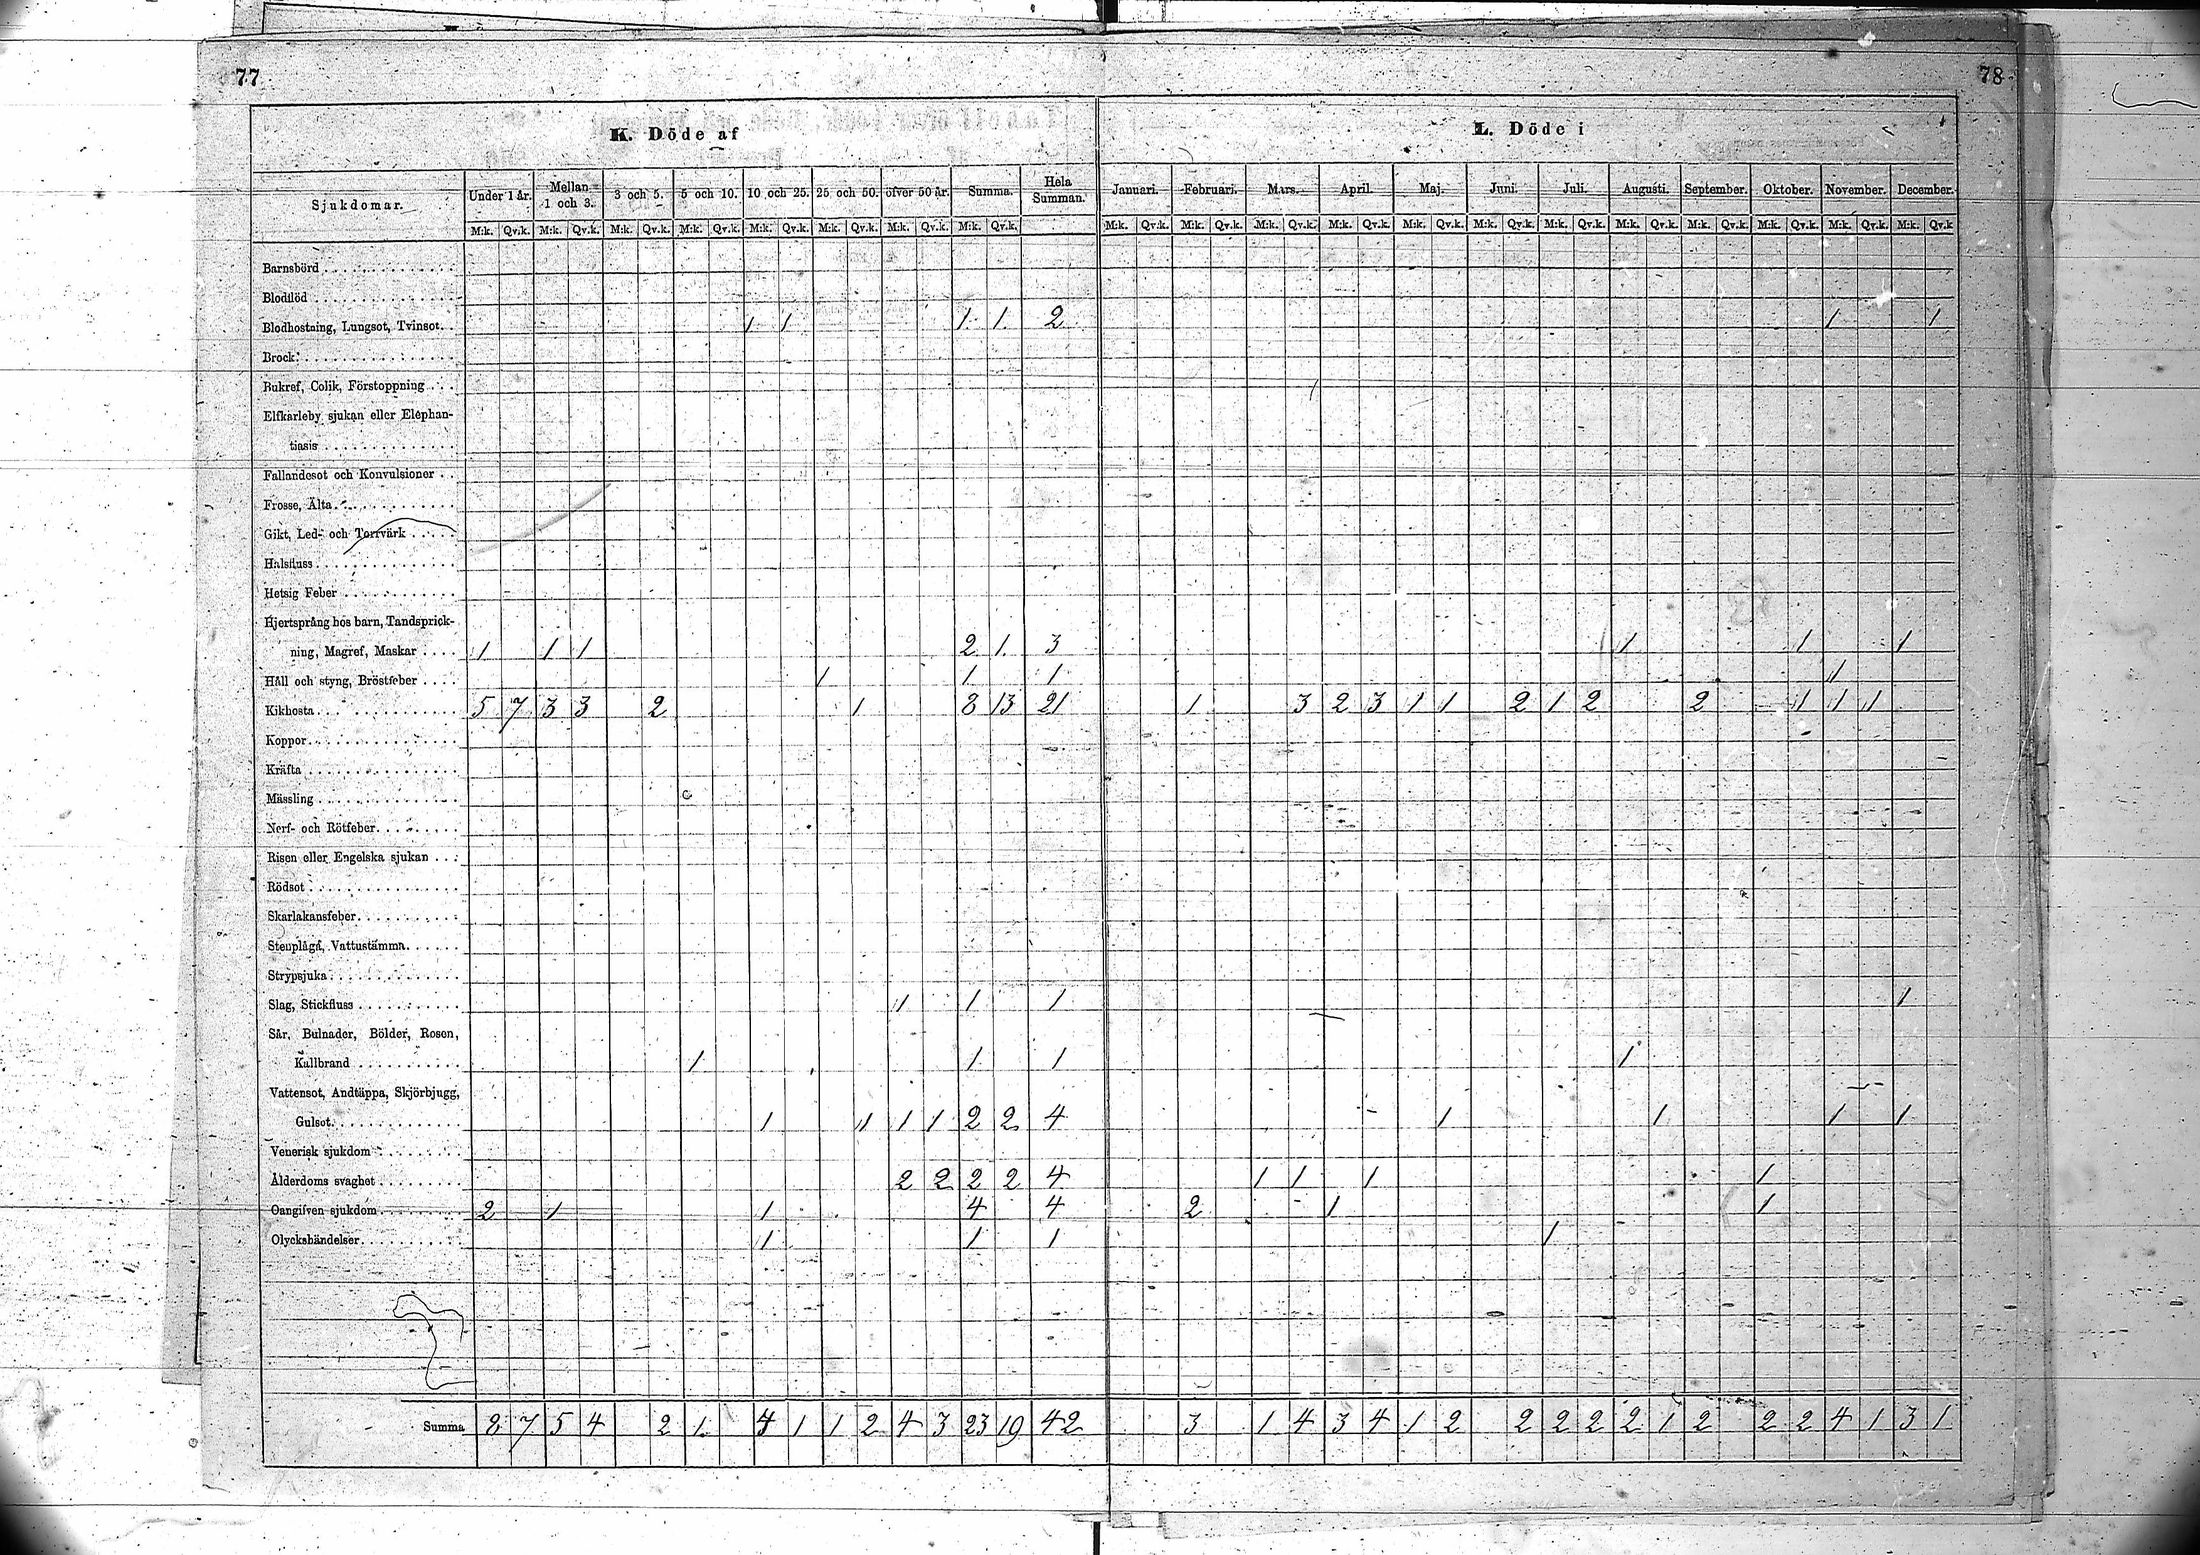 77
78
K. Döde af
L. Döde i
Sjukdomar. Under 1 år. Mellan 1 och 3. 3 och 5. 5 och 10. 10 och 25. 25 och 50. öfver 50 år. Summa. Hela Summan. Januari. Februari. Mars. April. Maj. Juni. Juli. Augusti. September. Oktober. November. December.
M:k. Qv.k. M:k. Qv.k. M:k. Qv.k. M:k. Qv.k. M:k. Qv.k. M:k. Qv.k. M:k. Qv.k. M:k. Qv.k. M:k. Qv.k. M:k. Qv.k. M:k. Qv.k. M:k. Qv.k. M:k. Qv.k. M:k. Qv.k. M:k. Qv.k. M:k. Qv.k. M:k. Qv.k. M:k. Qv.k. M:k. Qv.k. M:k. Qv.k
Barnsbörd
Blodflöd
Blodhostning, Lungsot, Tvinsot. 1 1 1 1 2 1 1
Brock
Bukref, Colik, Förstoppning
Elfkarleby sjukan eller Elephan-
tiasis
Fallandesot och Konvulsioner
Frosse, Älta
Gikt, Led- och Torrvärk
Halsfluss
Hetsig Feber
Hjertsprång hos barn, Tandsprick-
ning, Magref, Maskar 1 1 1 2 1 3 1 1 1
Håll och styng, Bröstfeber 1 1 1 1
Kikhosta 5 7 3 3 2 1 8 13 21 1 3 2 3 1 1 2 1 2 2 1 1 1
Koppor
Kräfta
Mässling
Nerf- och Rötfeber
Risen eller Engelska sjukan
Rödsot
Skarlakansfeber
Stenplågå, Vattustämma
Strypsjuka
Slag, Stickfluss 1 1 1 1
Sår, Bulnader, Bölder, Rosen,
Kallbrand 1 1 1 1
Vattensot, Andtäppa, Skjörbjugg,
Gulsot 1 1 1 1 2 2 4 1 1 1 1
Venerisk sjukdom
Ålderdoms svaghet 2 2 2 2 4 1 1 1 1
Oangifven sjukdom 2 1 1 4 4 2 1 1
Olyckshändelser 1 1 1 1
Summa 8 7 5 4 2 1 4 1 1 2 4 3 23 19 42 3 1 4 3 4 1 2 2 2 2 2 1 2 2 2 4 1 3 1